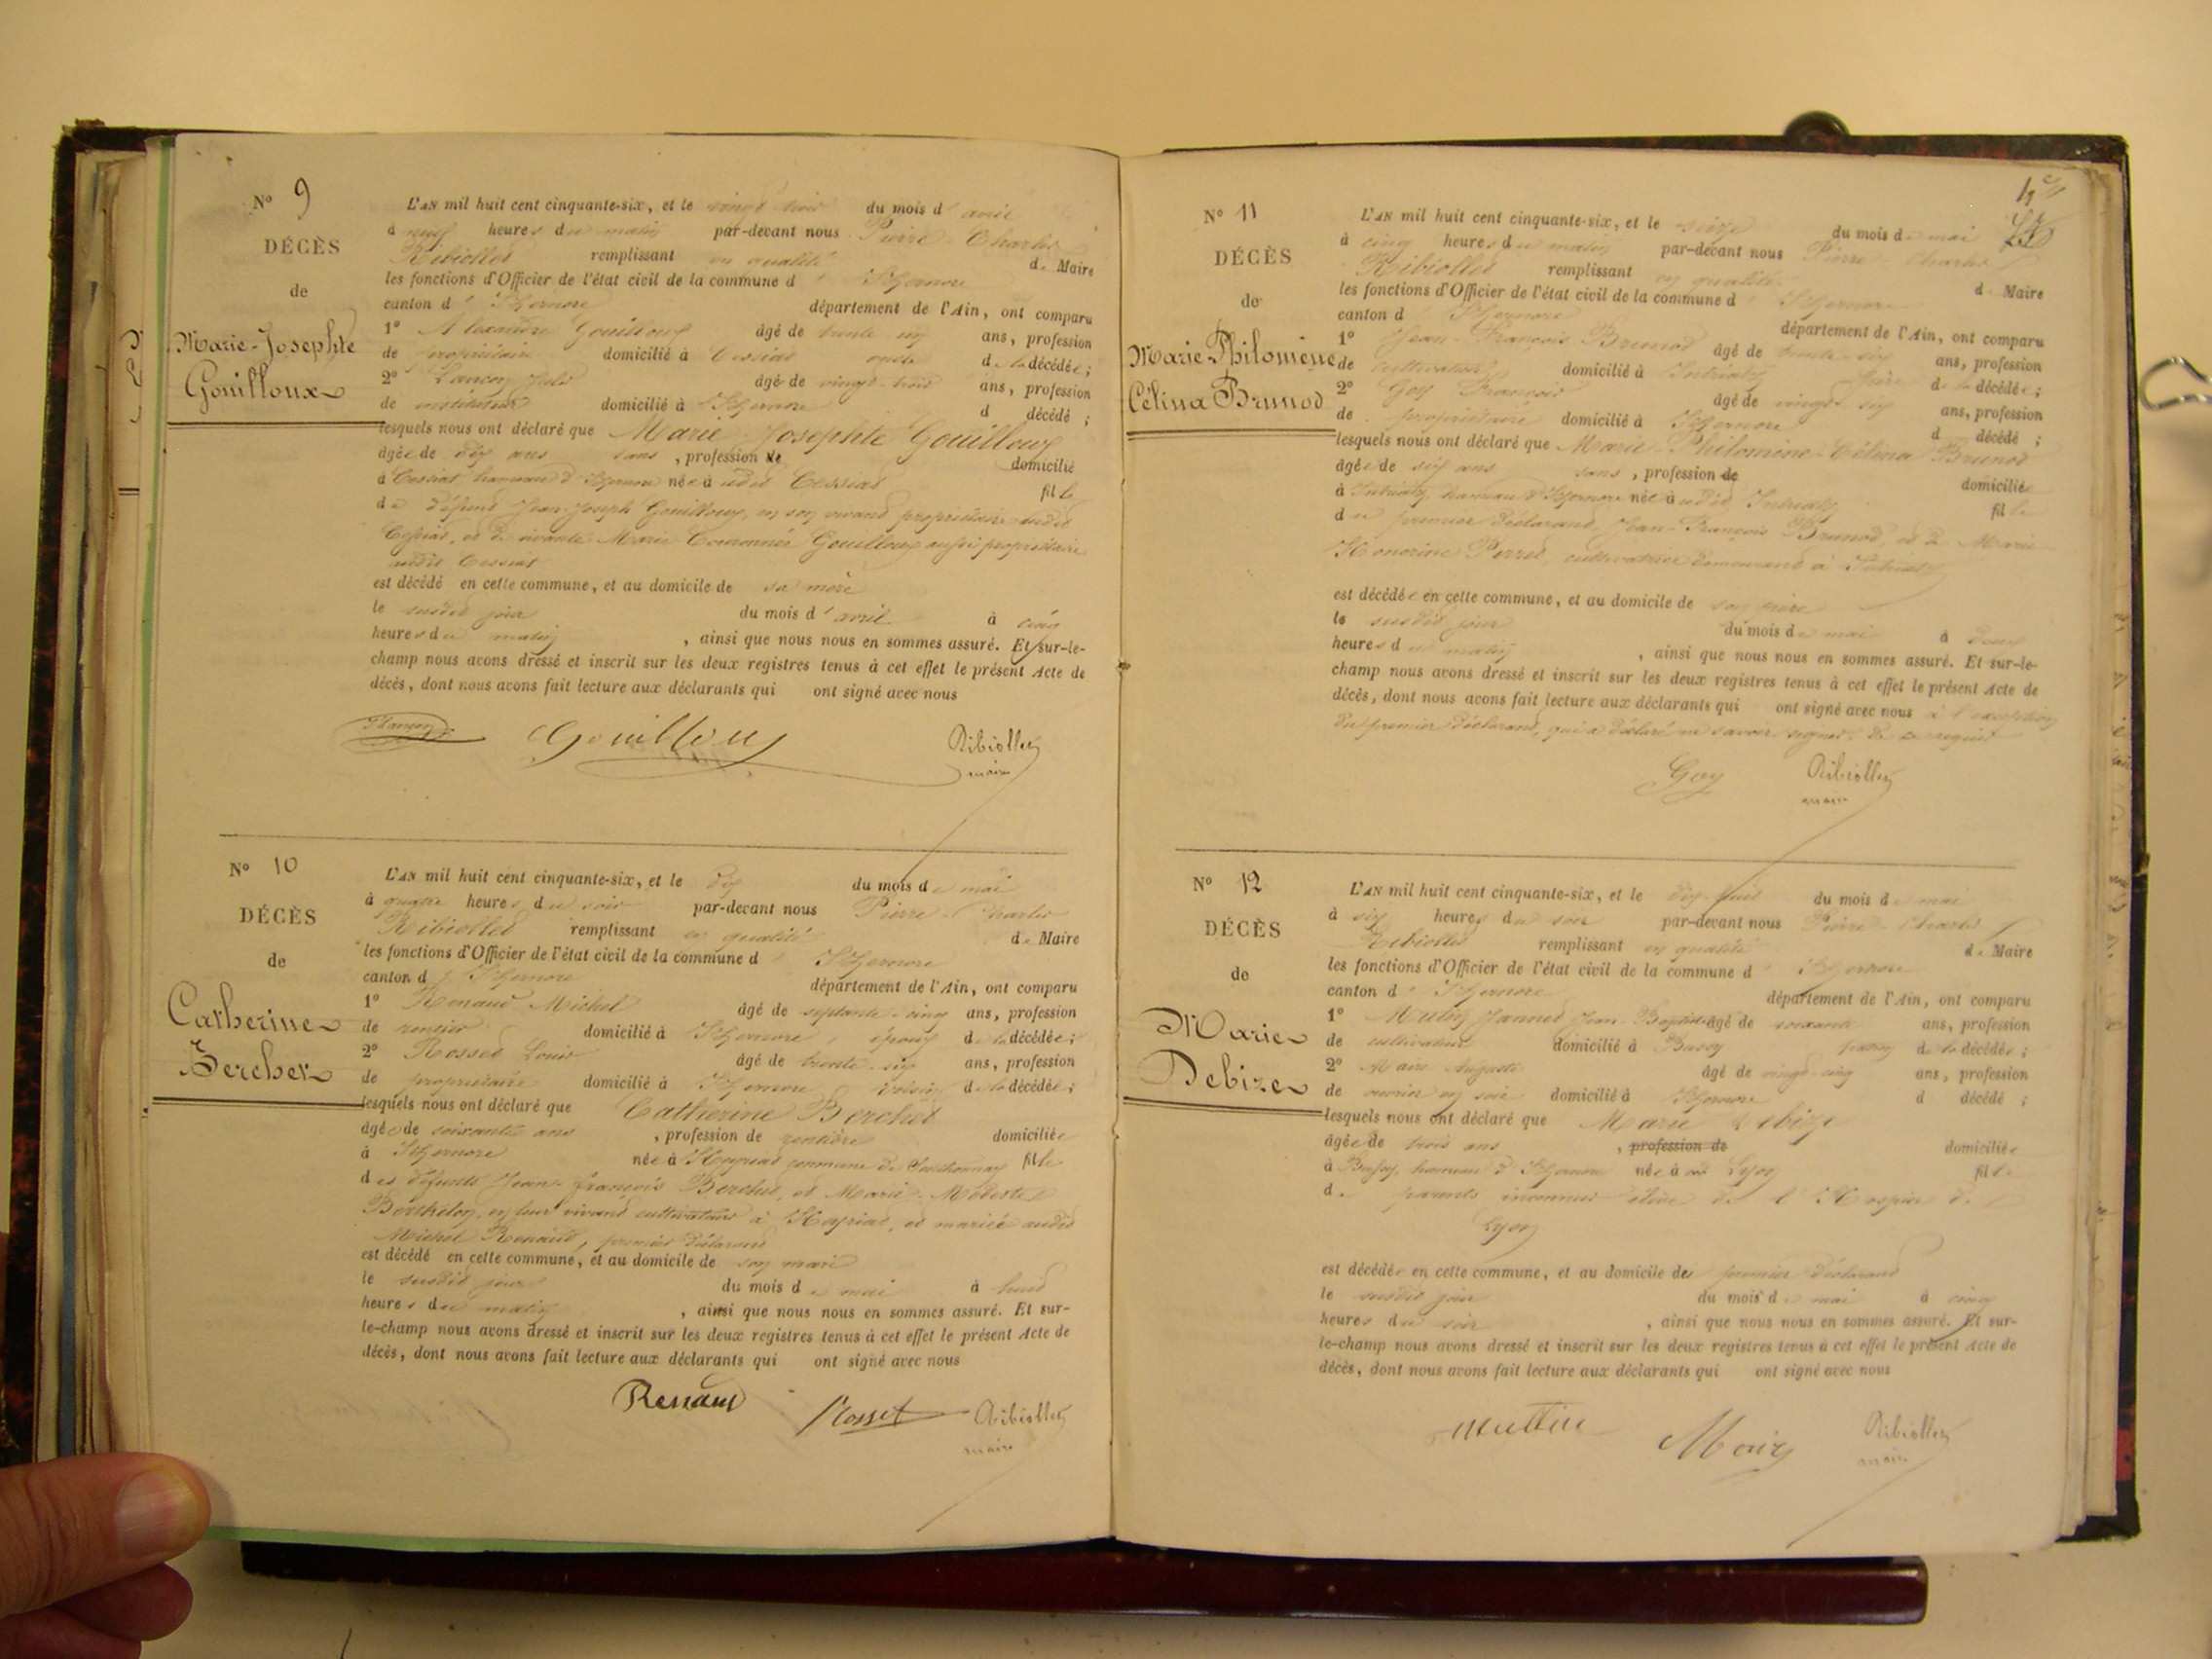 N° 9
DÉCÈS
de
Marie-Josephte
Gouilloux
L'AN mil huit cent cinquante-six, et le vingt trois du mois d'avril
à neuf heures du matin par-devant nous Pierre Charles
Ribiollet remplissant en qualité de Maire
les fonctions d'Officier de l'état civil de la commune d'Izernore
canton d'Izernore département de l'Ain, ont comparu
1° Alexandre Gouilloux âgé de trente un ans, profession
de propriétaire domicilié à Cessiat oncle de la décédée;
2° Lançon Jules âgé de vingt-trois ans, profession
de instituteur domicilié à Izernore d décédé ;
lesquels nous ont déclaré que Marie Josephte Gouilloux
âgée de dix ans sans , profession de domicilié
à Cessiat hameau d'Izernore née à udit Cessiat fille
du défunt Jean-Joseph Gouilloux, en son vivant propriétaire audit
Cessiat, et de vivante Marie Gouilloux aussi propriétaire
audit Cessiat
est décédé en cette commune, et au domicile de sa mère
le susdit jour du mois d'avril à cinq
heures du matin , ainsi que nous nous en sommes assuré. Et sur-le-
champ nous avons dressé et inscrit sur les deux registres tenus à cet effet le présent Acte de
décès, dont nous avons fait lecture aux déclarants qui ont signé avec nous
Gouilloux Ribiollet
maire
N° 10
DÉCÈS
de
Catherine
Bercher
L'AN mil huit cent cinquante-six, et le dix du mois de mai
à quatre heures du soir par-devant nous Pierre Charles
Ribiollet remplissant en qualité de Maire
les fonctions d'Officier de l'état civil de la commune d'Izernore
canton d'Izernore département de l'Ain, ont comparu
1° Renaud Michel âgé de septante-cinq ans, profession
de rentier domicilié à Izernore, époux de la décédée;
2° Rosset Louis âgé de trente-six ans, profession
de propriétaire domicilié à Izernore voisin de la décédée;
lesquels nous ont déclaré que Catherine Berchet
âgée de soixante ans , profession de rentière domiciliée
à Izernore née à Heyriat commune de Sonthonnax fille
des défunts Jean-François Berchet, et Marie-Modeste
Berthelon, en leur vivant cultivateurs à Heyriat, et mariée audit
Michel Renaud, premier déclarant
est décédé en cette commune, et au domicile de son mari
le susdit jour du mois de mai à huit
heures du matin , ainsi que nous nous en sommes assuré. Et sur-
le-champ nous avons dressé et inscrit sur les deux registres tenus à cet effet le présent Acte de
décès, dont nous avons fait lecture aux déclarants qui ont signé avec nous
Renaud Rosset Ribiollet
maire
N° 11
DÉCÈS
de
Marie-Philomène
Célina Brunod
L'AN mil huit cent cinquante-six, et le seize du mois de mai
à cinq heures du matin par-devant nous Pierre-Charles
Ribiollet remplissant en qualité de Maire
les fonctions d'Officier de l'état civil de la commune d'Izernore
canton d'Izernore département de l'Ain, ont comparu
1° Jean-François Brunod âgé de trente-six ans, profession
de cultivateur domicilié à Intriat père de la décédée;
2° Goy François âgé de vingt-six ans, profession
de propriétaire domicilié à Izernore d décédé ;
lesquels nous ont déclaré que Marie-Philomène-Célina Brunod
âgée de six ans sans , profession de domiciliée
à Intriat hameau d'Izernore née à udit Intriat fille
du premier déclarant Jean-François Brunod, et de Marie
Honorine Perret, cultivatrice demeurant à Intriat
est décédée en cette commune, et au domicile de son père
le susdit jour du mois de mai à deux
heures du matin , ainsi que nous nous en sommes assuré. Et sur-le-
champ nous avons dressé et inscrit sur les deux registres tenus à cet effet le présent Acte de
décès, dont nous avons fait lecture aux déclarants qui ont signé avec nous à l'exception
du premier déclarant, qui a déclaré ne savoir signer, de ce requis
Goy Ribiollet
maire
N° 12
DÉCÈS
de
Marie
Debize
L'AN mil huit cent cinquante-six, et le dix-huit du mois de mai
à six heures du soir par-devant nous Pierre Charles
Ribiollet remplissant en qualité de Maire
les fonctions d'Officier de l'état civil de la commune d'Izernore
canton d'Izernore département de l'Ain, ont comparu
1° Mutin Jannet Jean-Baptiste âgé de soixante ans, profession
de cultivateur domicilié à Bussy de la décédée;
2° Maire Auguste âgé de vingt-cinq ans, profession
de ouvrier en soie domicilié à Izernore d décédé ;
lesquels nous ont déclaré que Marie Debize
âgée de trois ans , profession de domiciliée
à Bussy, hameau d'Izernore née à Lyon fille
de parents inconnus élève de l'Hospice de
Lyon
est décédée en cette commune, et au domicile de premier déclarant
le susdit jour du mois de mai à cinq
heures du soir , ainsi que nous nous en sommes assuré. Et sur-
le-champ nous avons dressé et inscrit sur les deux registres tenus à cet effet le présent Acte de
décès, dont nous avons fait lecture aux déclarants qui ont signé avec nous
Muttin Ribiollet
maire